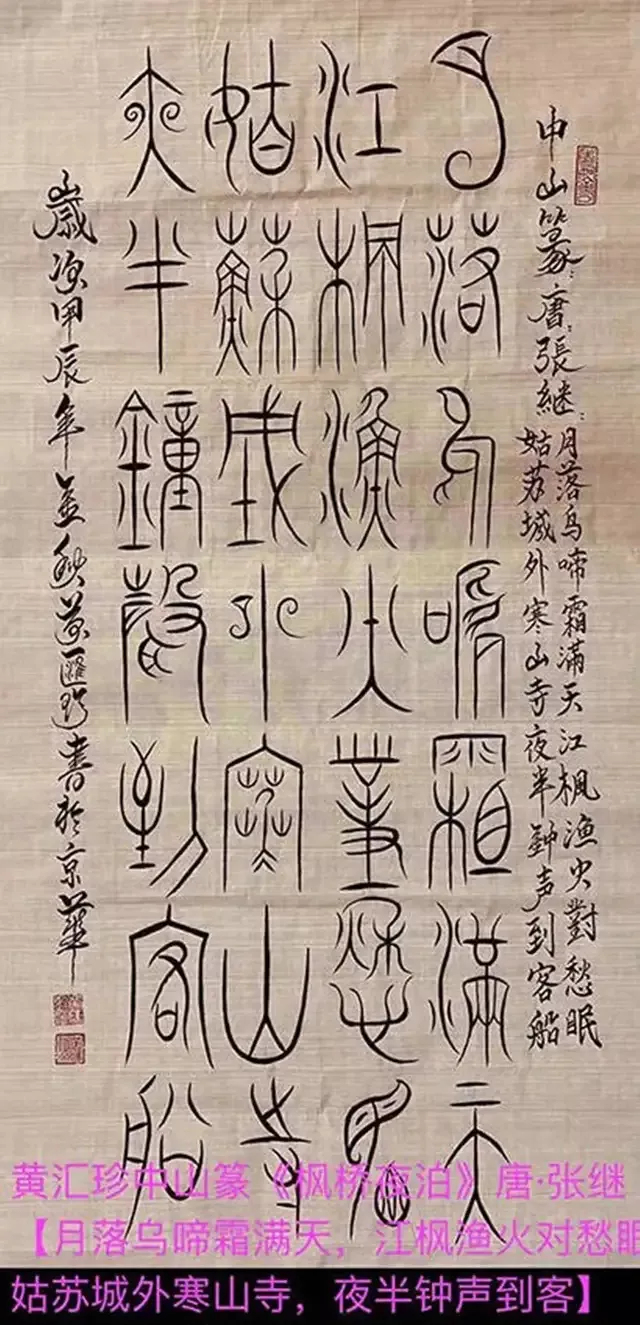 中山篆:唐:張継:
月落烏啼霜滿天江楓漁火對愁眠
姑苏城外寒山寺夜半鈡声到客船
月落烏啼霜滿天
江楓漁火對愁眠
姑蘇城外寒山寺
夜半鐘聲到客船
歲次甲辰年秋黄匯珍書於京華
黄汇珍中山篆《枫桥夜泊》唐·张继
【月落乌啼霜满天，江枫渔火对愁眠
姑苏城外寒山寺，夜半钟声到客】